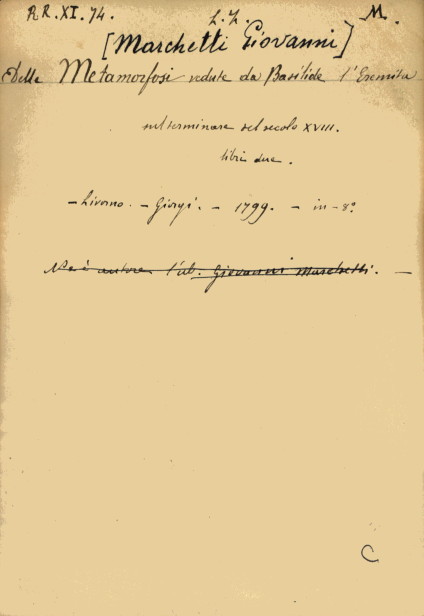 RR.XI.74. L.Z. M.
[Marchetti Giovanni]
Delle Metamorfosi vedute da Basilide l'Eremita
nel terminare del secolo XVIII.
libri due.
- Livorno. - Giorgi. - 1799. - in-8°
Ne è autore l'ab. Giovanni Marchetti. -
C